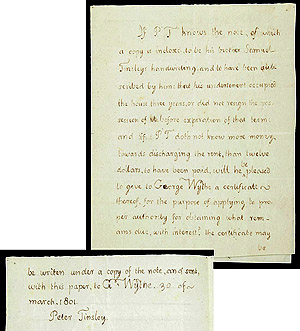 If P T knows the note, of which
a copy is indorsed to be his brother Samuel
Tinsleys handwriting, and to have been sub=
scribed by him; that his undertenent occupied
the house three years, or did not resign the pos-
session of it before expiration of that term:
and if P T doth not know more money,
towards discharging the rent, than twelve
dollars, to have been paid, will he be pleased
to give to George Wythe a certificate
thereof, for the purpose of applying to pro-
per authority for obtaining what rem-
ains due, with interest? the certificate may
be
be written under a copy of the note, and sent,
with this paper, to G Wythe. 30 of
march, 1801.
Peter Tinsley.